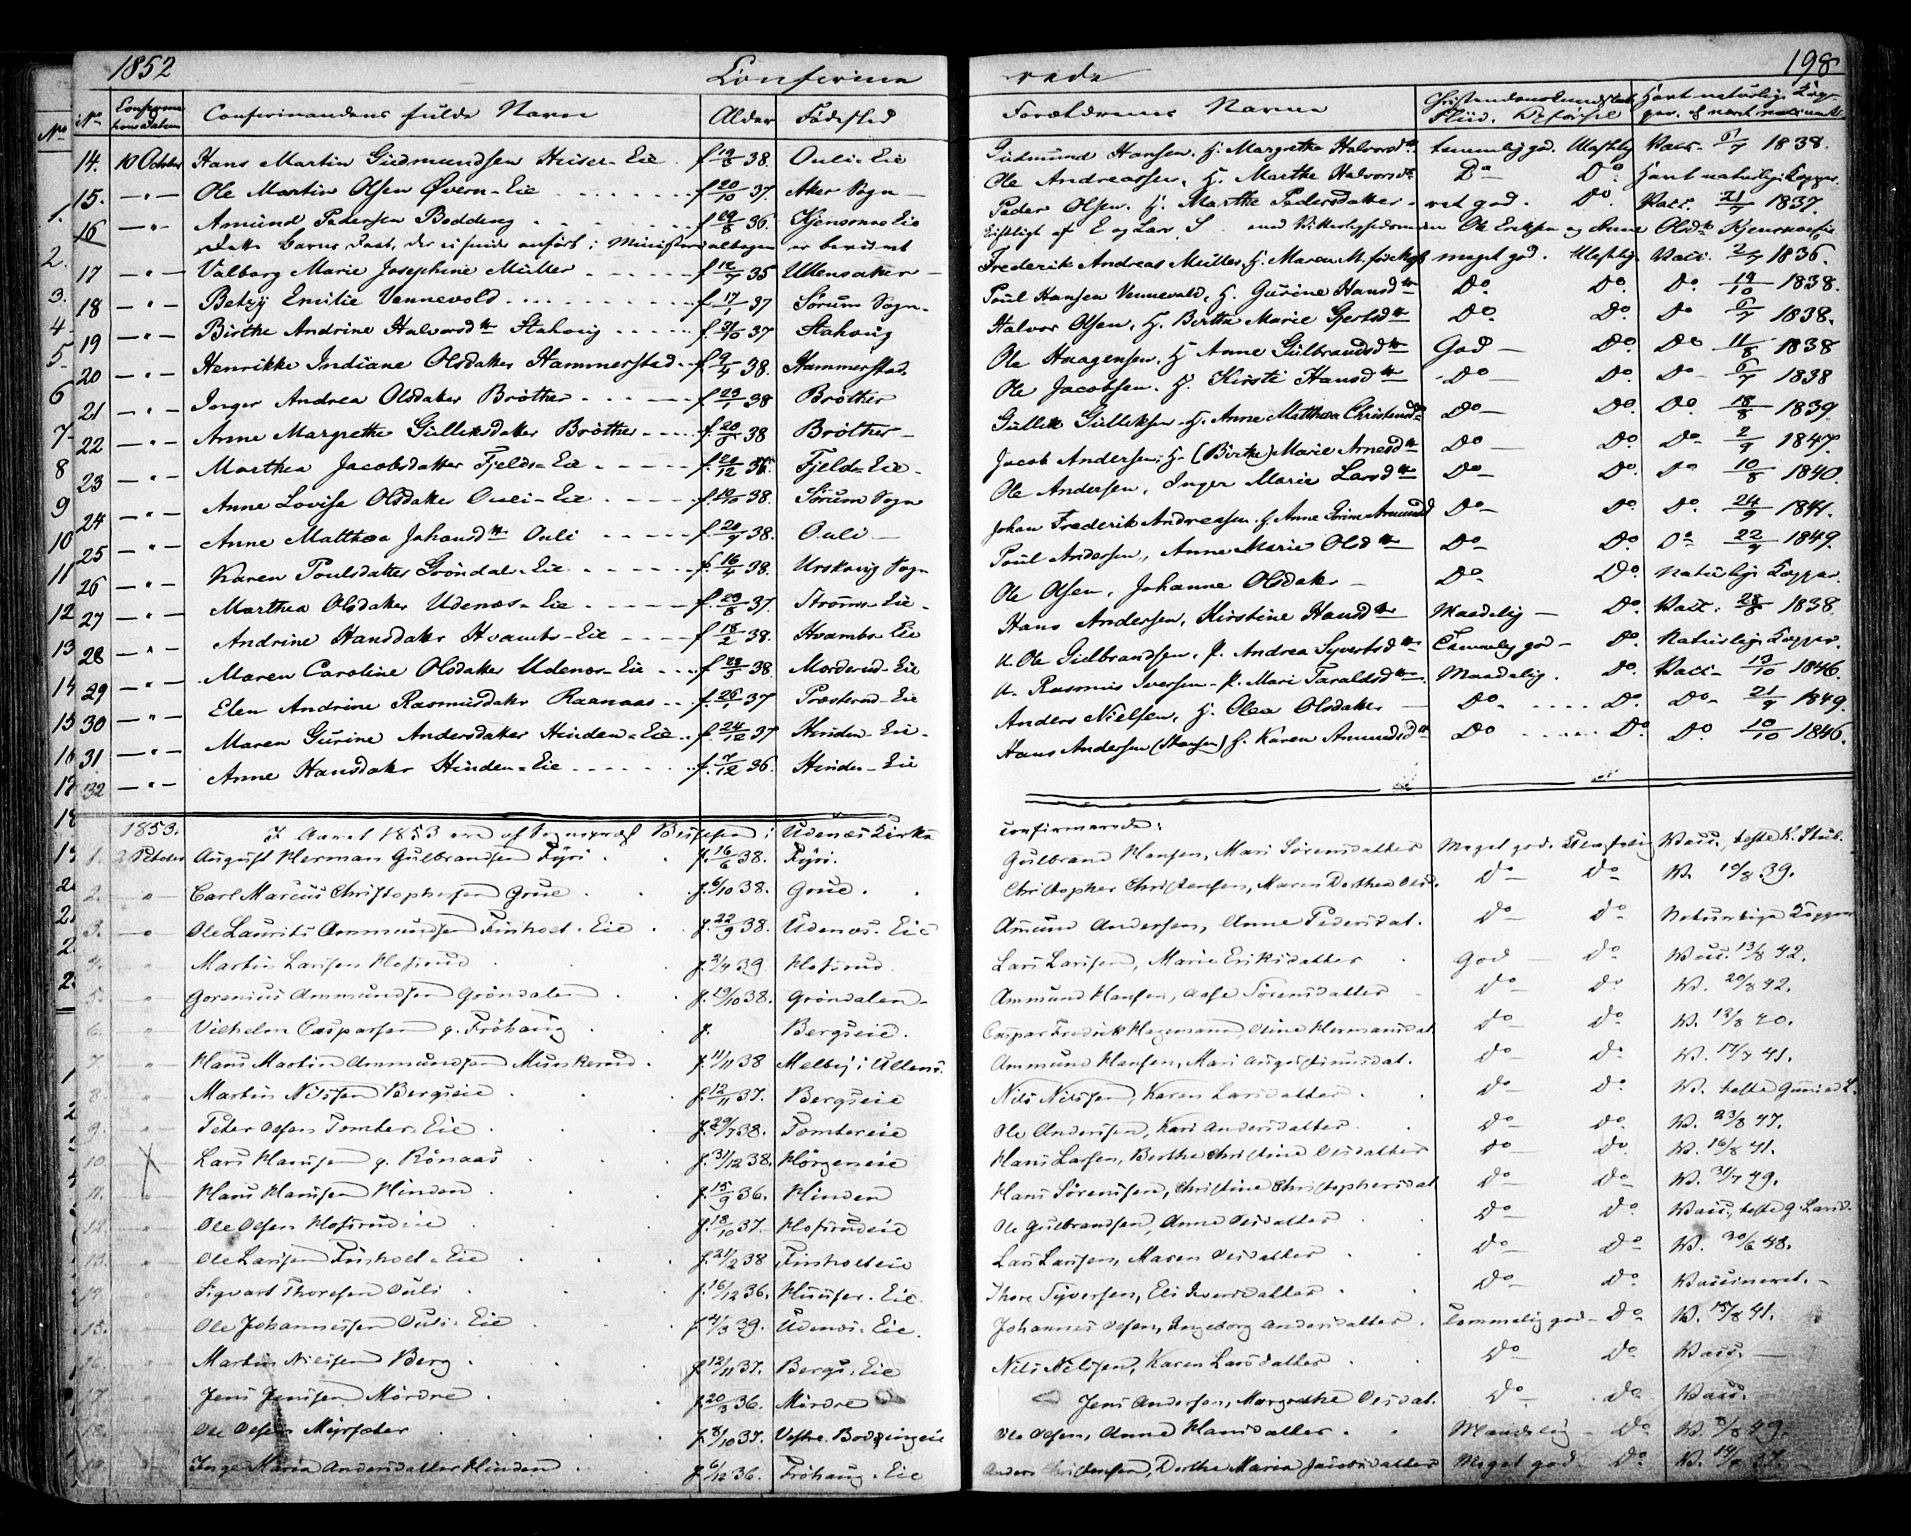 1852 Confirme rede 198
No. Confirmationsdatum Confirmandens fulde Navn Alder Fødested Forældrenes Navne Christendomskundskab Fliid. Opførsel Havt naturlige Kopper el. vaccineret
14. 10 October Hans Martin Gudmundsen Eie f. 19/8 38. Ouli-Eie Gudmund Hansen. H. Margrethe Halvorsdtr temmelig god. Ulastelig Vacc. 1838.
15. -"- Ole Martin Olsen Øvern-Eie f. 20/10 37. Aker Sogn Ole Andreassen, H. Marthe Halvorsdtr Do Do. Havt naturlige Kopper.
16 -"- Amund Pedersen Bodding f. 29/8 36. Kjensmoe Eie Peder Olsen. H. Marthe Pedersdatter ret god. Do. Vacc. 21/7 1837.
dette Barns Daab, der ei findes anført i Ministerialbogen er bevidnet
17 -"- Valborg Marie Josephine Müller f. 12/7 35 Ullensaker Frederik Andreas Müller, H. Maren M. meget god. Ulastelig Vacc. 2/7 1836.
18 -"- Betzy Emilie Vennevold f. 17/1 37 Sørum Sogn. Poul Hansen Vennevald, H. Gurine Hansdtr Do Do. Do 19/10 1838.
19 -"- Birthe Andrine Halvorsdtr Stahoug f. 31/10 37 Stahoug Halvor Olsen, H. Birtha Marie Gjertsdtr Do Do. Do 1838.
20 -"- Henrikke Indiane Olsdatter Hammerstad f. 9/4 38. Hammerstad. Ole Haagensen, H. Anne Gulbrandsdtr God Do. Do 11/8 1838
21 -"- Inger Andrea Olsdatter Brøther f. 23/1 38 Brøther Ole Jacobsen. H. Kirsti Hansdtr Do Do. Do 1838
22 -"- Anne Margrethe Gulliksdatter Brøther f. 38 Brøther Gullik Gulliksen H. Anne Matthea Do Do. Do. 18/8 1839.
23 -"- Marthea Jacobsdatter Fjelds-Eie f. 20/12 Fjelds-Eie. Jacob Andersen, H. (Birthe) Marie Arnesdtr Do Do. Do 2/9 1847.
24 -"- Anne Lovise Olsdatter Ouli-Eie f. 38. Sørum Sogn Ole Andersen, Inger Marie Larsdtr Do Do. Do 10/8 1840.
25 -"- Anne Matthea Johansdtr Ouli f. 20/7 38. Ouli Johan Frederik Andreasen. H. Anne Sorine Do Do. Do. 24/9 1841.
26 -"- Karen Poulsdatter Grøndal-Eie f. 16/4 38. Urskoug Sogn Poul Andersen, Anne Marie Olsdtr Do Do. Do 22/7 1849.
27 -"- Marthea Olsdatter Udenæs-Eie f. 37. Strøms-Eie. Ole Olsen, Johanne Olsdatter Do Do. Naturlige Kopper.
28 -"- Andrine Hansdatter Hvambs-Eie f. 18/2 38. Hvambs Eie Hans Andersen, Kirstine Hansdtr Maadelig Do. Vacc. 28/8 1838.
29 -"- Maren Caroline Olsdatter Udenæs-Eie f. 38. Morderud-Eie U. Ole Gulbrandsen, P. Andrea Syvertsdtr Temmelig god Do. Naturlige Kopper.
30 -"- Elen Andrine Rasmusdatter Raanaas f. 26/1 37 Præsterud-Eie U. Rasmus Iversen P. Mari Taraldsdtr Maadelig. Do. Vacc. 13/10 1846.
31 -"- Maren Gurine Andersdatter Hinden-Eie f. 24/12 37 Hinden-Eie. Anders Nielsen, H. Olea Olsdatter Do Do. Do 21/7 1849.
32 -"- Anne Hansdatter Hinden-Eie f. 7/12 36. Hinden-Eie Hans Andersen (Hansen) H. Karen Amundsdtr Do Do. Do. 10/10 1846.
1853. I Aaret 1853 ere af Sognepræst i Udenæs Kirke confirmerede:
1. 2 October August Herman Gulbrandsen Fyri f. 16/6 38. Fyri. Gulbrand Hansen, Mari Sørensdatter Meget god. Ulastelig Vacc.
2. " Carl Marcus Christophersen Grue f. 6/10 38. Grue. Christopher Christensen, Maren Dorthea Do Do V. 19/8 39.
3. " Ole Laurits Ammundsen Finholt-Eie f. 22/9 38. Udenæs-Eie Amund Andersen, Anne Pedersdat. Do Do Naturlige Kopper
4. " Martin Larsen Hofsrud f. 2/4 39 Hofsrud. Lars Larsen, Marie Eriksdatter God Do Vacc. 13/8 42.
5. " Gorenius Ammundsen Grøndalen f. 19/10 38. Grøndalen Ammund Hansen, Aase Sørensdatter Do Do V. 20/8 42.
6. " Vilhelm Casparsen g. Frøhaug f. Bergseie. Caspar Fredrick Hagemann, Oline Hermansdat. Do Do V. 12/8 40.
7. " Hans Martin Ammundsen Munkerud f. 11/11 38 Melby i Ullens. Ammund Hansen, Mari Augustinusdat. Do Do V. 17/7 41.
8. " Martin Nilssen Bergseie f. 12/11 37. Bergseie Nils Nilssen, Karen Larsdatter Do Do V.
9. " Peter Olsen Tomter-Eie f. 29/7 38. Tomtereie Ole Andersen, Kari Andersdatter Do Do V. 23/8 47.
10. Lars Hansen g. Rønaas f. 31/12 38. Hørgeneie Hans Larsen, Berthe Christine Olsdatter Do Do V. 16/8 41.
11. " Hans Hansen Hinden f. 15/9 36. Hinden Hans Sørensen, Christine Christophersdat Do Do V. 31/7 49.
12. " Ole Olsen Hofsrudeie f. 18/10 37. Hofsrudeie Ole Gulbrandsen, Anne Olsdatter Do Do Vacc.
13. " Ole Larsen Finholt-Eie f. 21/2 38 Finholteie Lars Larsen, Maren Olsdatter Do Do V. 30/6 48.
14. " Sigvart Thoresen Ouli f. 16/12 36. Huuser-Eie. Thore Syversen, Eli Iversdatter Do Do Vaccineret.
15. " Ole Johannessen Ouli-Eie f. 4/3 39. Udenæs-Eie. Johannes Olsen, Ingeborg Andersdatter Temmelig god Do V. 15/8 41.
16. " Martin Nilssen Berg f. 12/11 37. Bergs-Eie Nils Nilssen, Karen Larsdatter Do Do Vacc.
17. " Jens Jensen Mørdre f. 20/3 36. Mørdre Jens Andersen, Margrethe Olsdat. Do Do Vacc.
18. " Ole Olsen f. 8/10 37. Vestre Boddingeie Ole Olsen, Anne Hansdatter Maadelig Do V. 49.
19. " Inger Maria Andersdatter Hinden f. 6/12 36. Frøhaug-Eie Anders Christensen, Dorthe Maria Jacobsdatter Meget god Do V. 37.